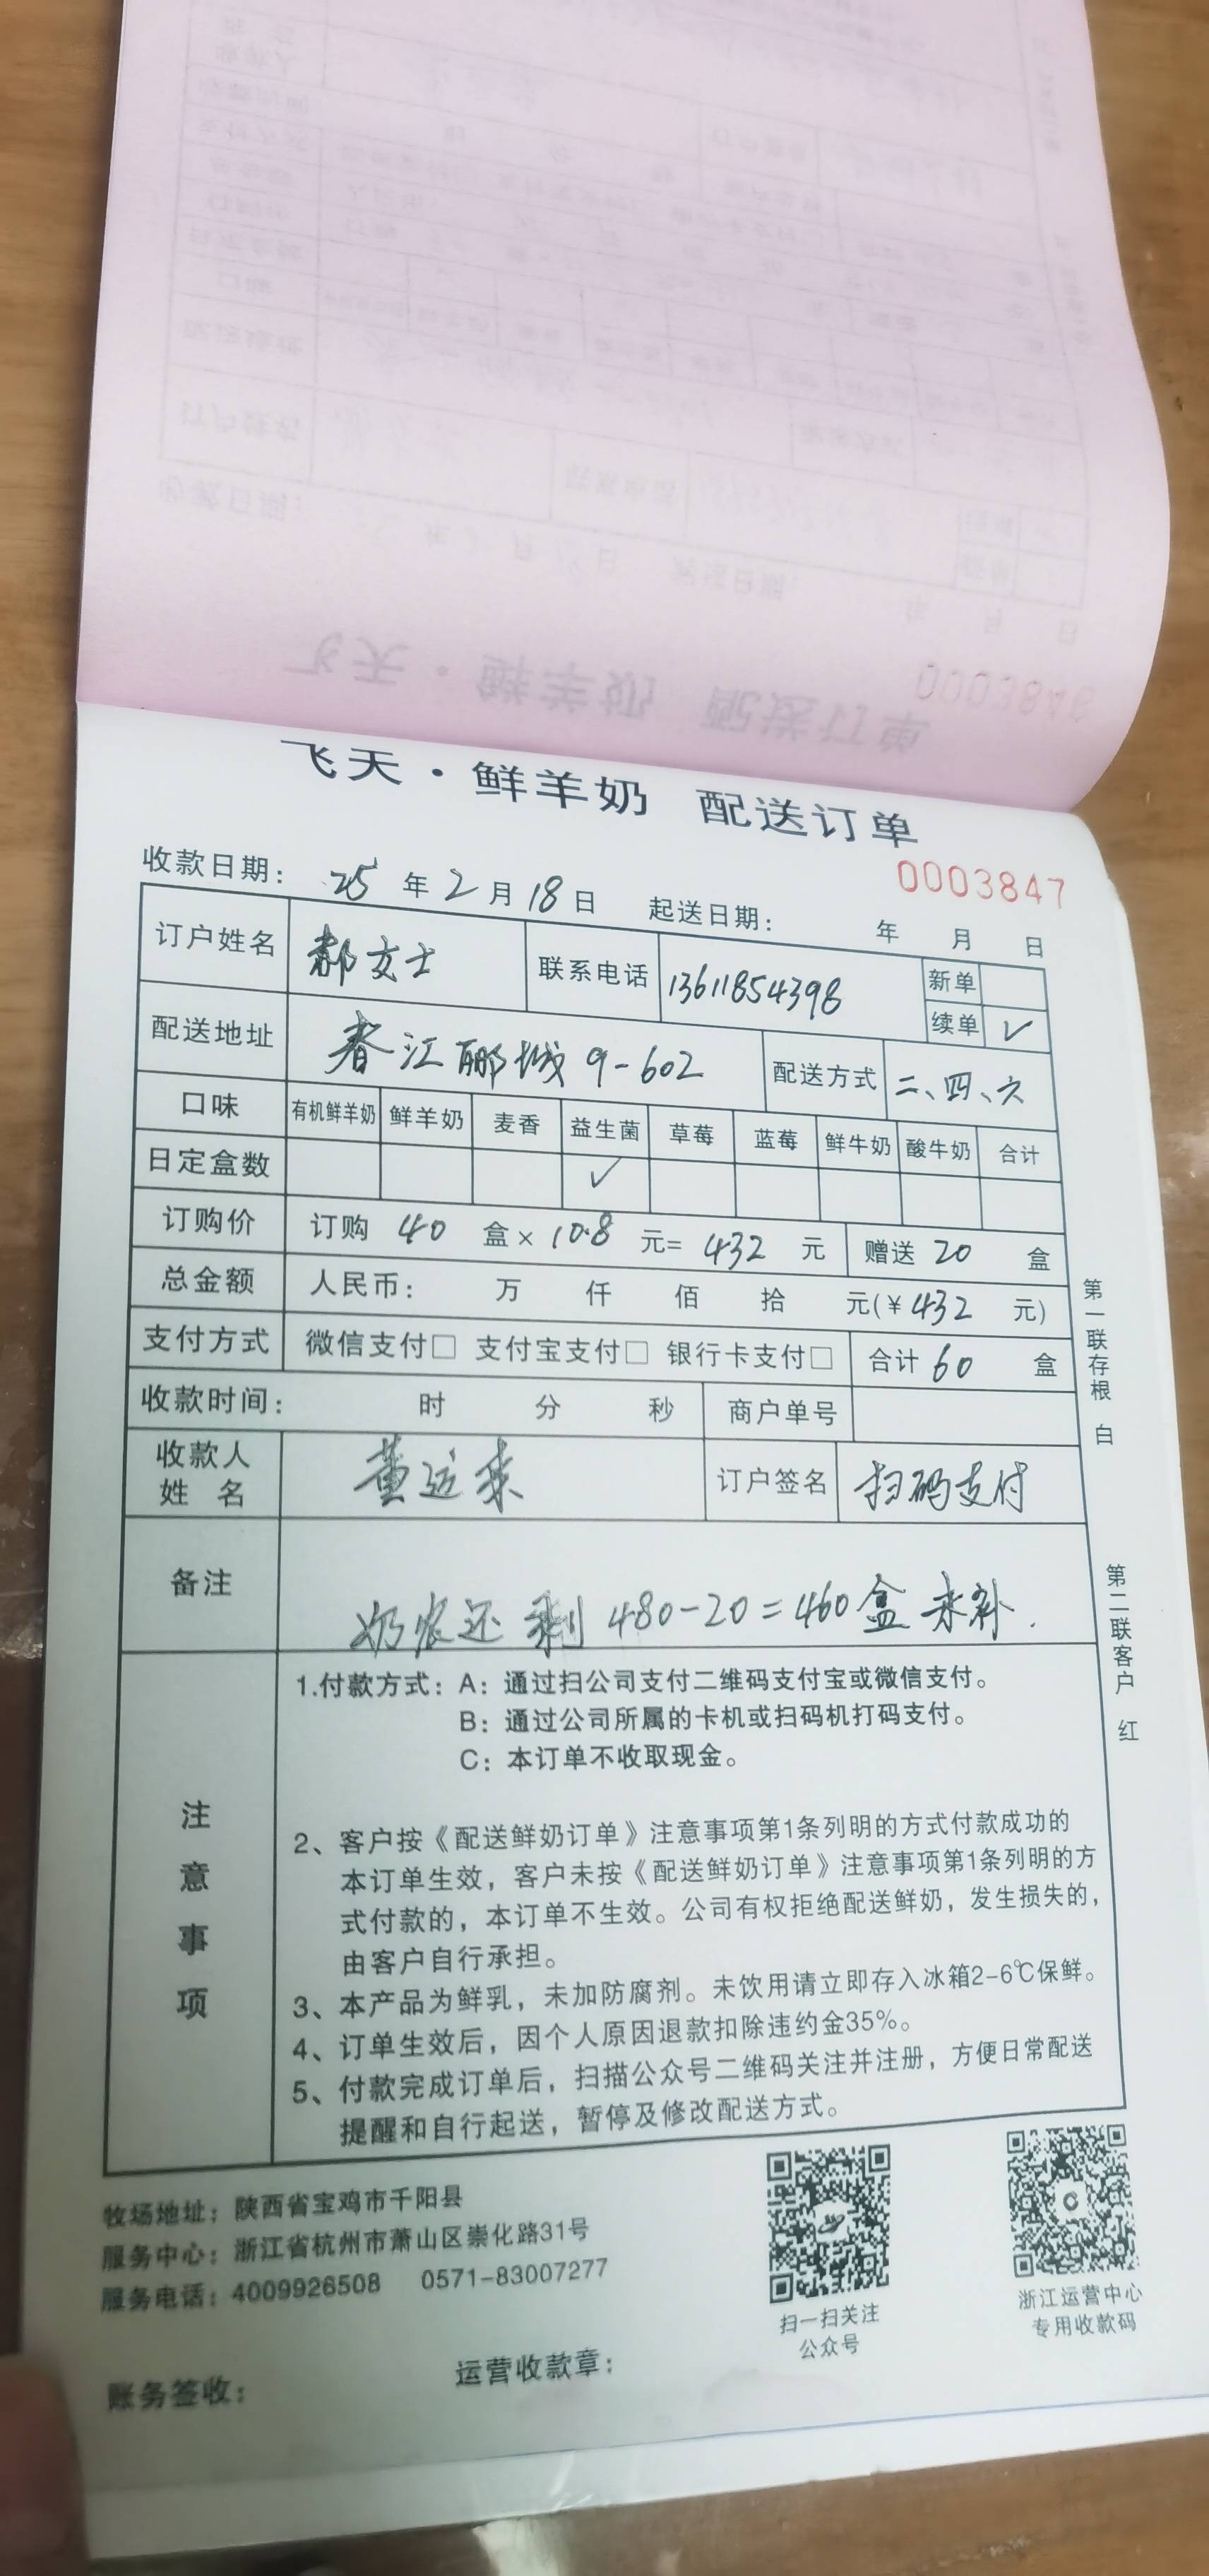 飞天·鲜羊奶 配送订单
0003847
收款日期： 25 年 2 月 18 日 起送日期： 年 月 日
订户姓名 郝女士 联系电话 13611854398 新单
续单 ✓
配送地址 春江郦城 9-602 配送方式 二、四、六
口味 有机鲜羊奶 鲜羊奶 麦香 益生菌 草莓 蓝莓 鲜牛奶 酸牛奶 合计
日定盒数 ✓
订购价 订购 40 盒× 10.8 元= 432 元 赠送 20 盒
总金额 人民币： 万 仟 佰 拾 元(¥ 432 元)
支付方式 微信支付□ 支付宝支付□ 银行卡支付□ 合计 60 盒
收款时间： 时 分 秒 商户单号
收款人
姓 名 黄运来 订户签名 扫码支付
备注 奶农还剩 480-20=460盒 未补.
注意事项
1.付款方式：A：通过扫公司支付二维码支付宝或微信支付。
B：通过公司所属的卡机或扫码机打码支付。
C：本订单不收取现金。
2、客户按《配送鲜奶订单》注意事项第1条列明的方式付款成功的
本订单生效，客户未按《配送鲜奶订单》注意事项第1条列明的方
式付款的，本订单不生效。公司有权拒绝配送鲜奶，发生损失的，
由客户自行承担。
3、本产品为鲜乳，未加防腐剂。未饮用请立即存入冰箱2-6℃保鲜。
4、订单生效后，因个人原因退款扣除违约金35%。
5、付款完成订单后，扫描公众号二维码关注并注册，方便日常配送
提醒和自行起送，暂停及修改配送方式。
第一联存根 白
第二联客户 红
牧场地址：陕西省宝鸡市千阳县
服务中心：浙江省杭州市萧山区崇化路31号
服务电话：4009926508 0571-83007277
扫一扫关注
公众号
浙江运营中心
专用收款码
账务签收： 运营收款章：